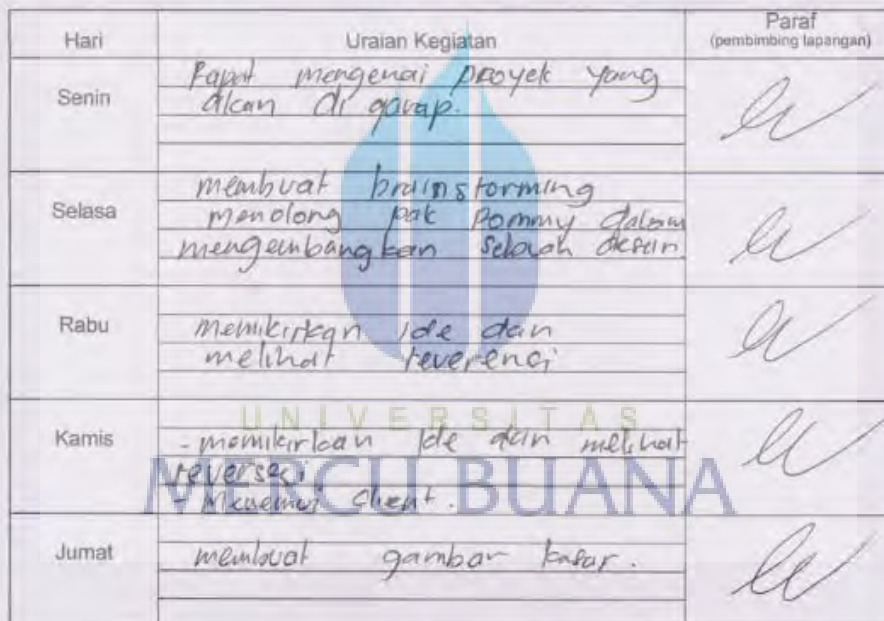 Hari Uraian Kegiatan Paraf
(pembimbing lapangan)
Senin
Rapat mengenai proyek yang
akan di garap.
Selasa
membuat brainstorming
menolong pak Pommy dalam
mengembangkan sebuah desain
Rabu
memikirkan ide dan
melihat reverenci
UNIVERSITAS
Kamis
- memikirkan ide dan melihat
reversesi
MERCU BUANA
- Menemui Client.
Jumat
membuat gambar kasar.